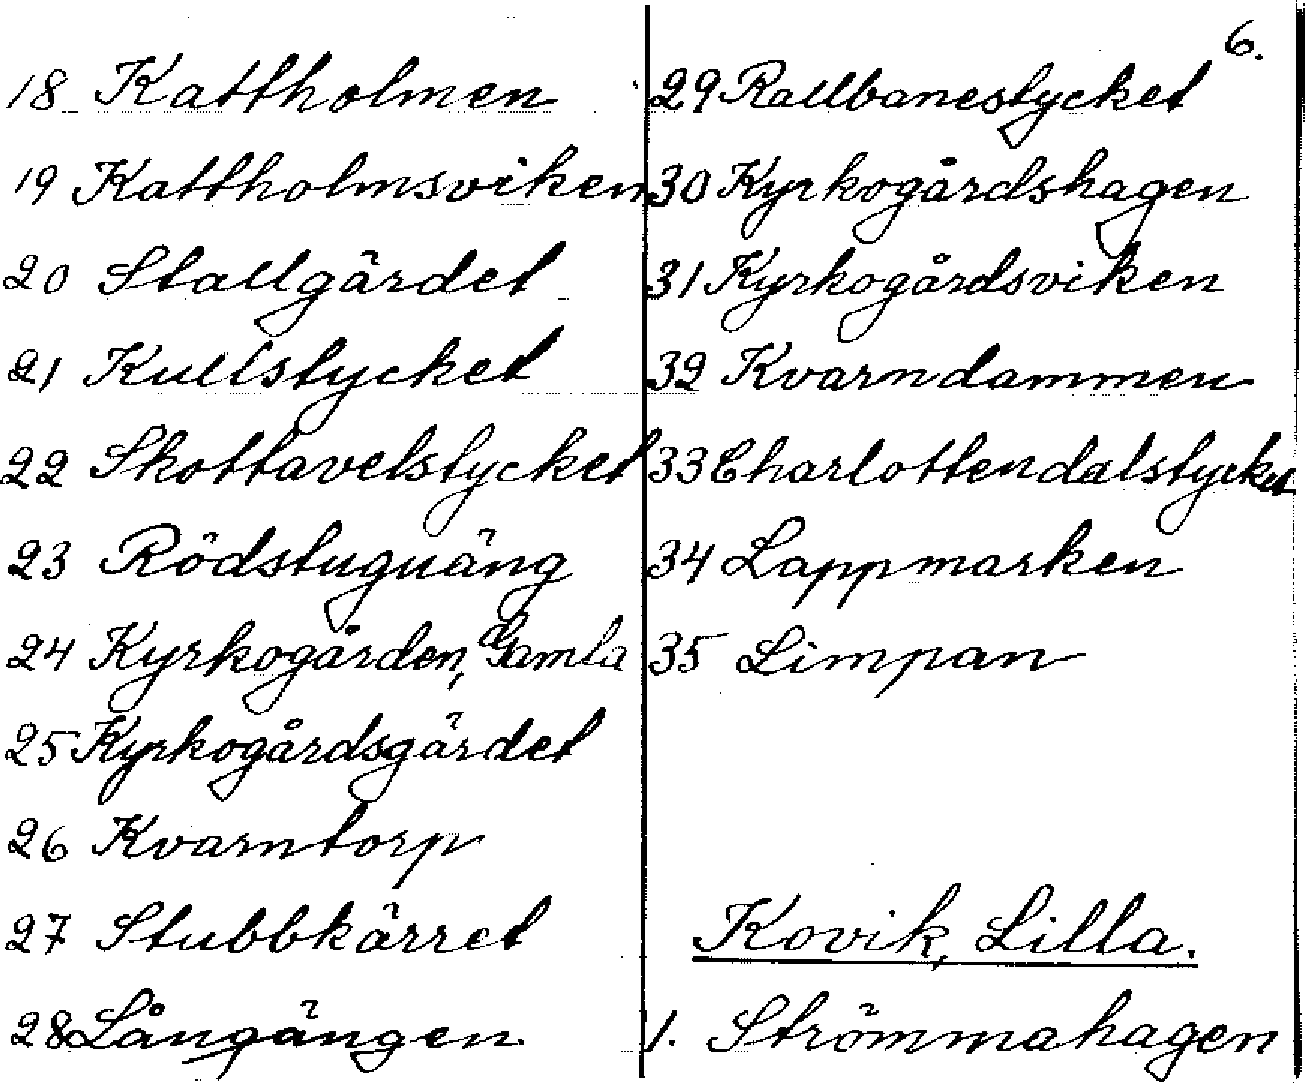 6.
18 Kattholmen
19 Kattholmsviken
20 Stallgärdet
21 Kullstycket
22 Skottavelstycket
23 Rödstuguäng
24 Kyrkogården, Gamla
25 Kyrkogårdsgärdet
26 Kvarntorp
27 Stubbkärret
28 Långängen
29 Rallbanestycket
30 Kyrkogårdshagen
31 Kyrkogårdsviken
32 Kvarndammen
33 Charlottendalstycket
34 Lappmarken
35 Limpan
Kovik, Lilla.
1. Strömmahagen